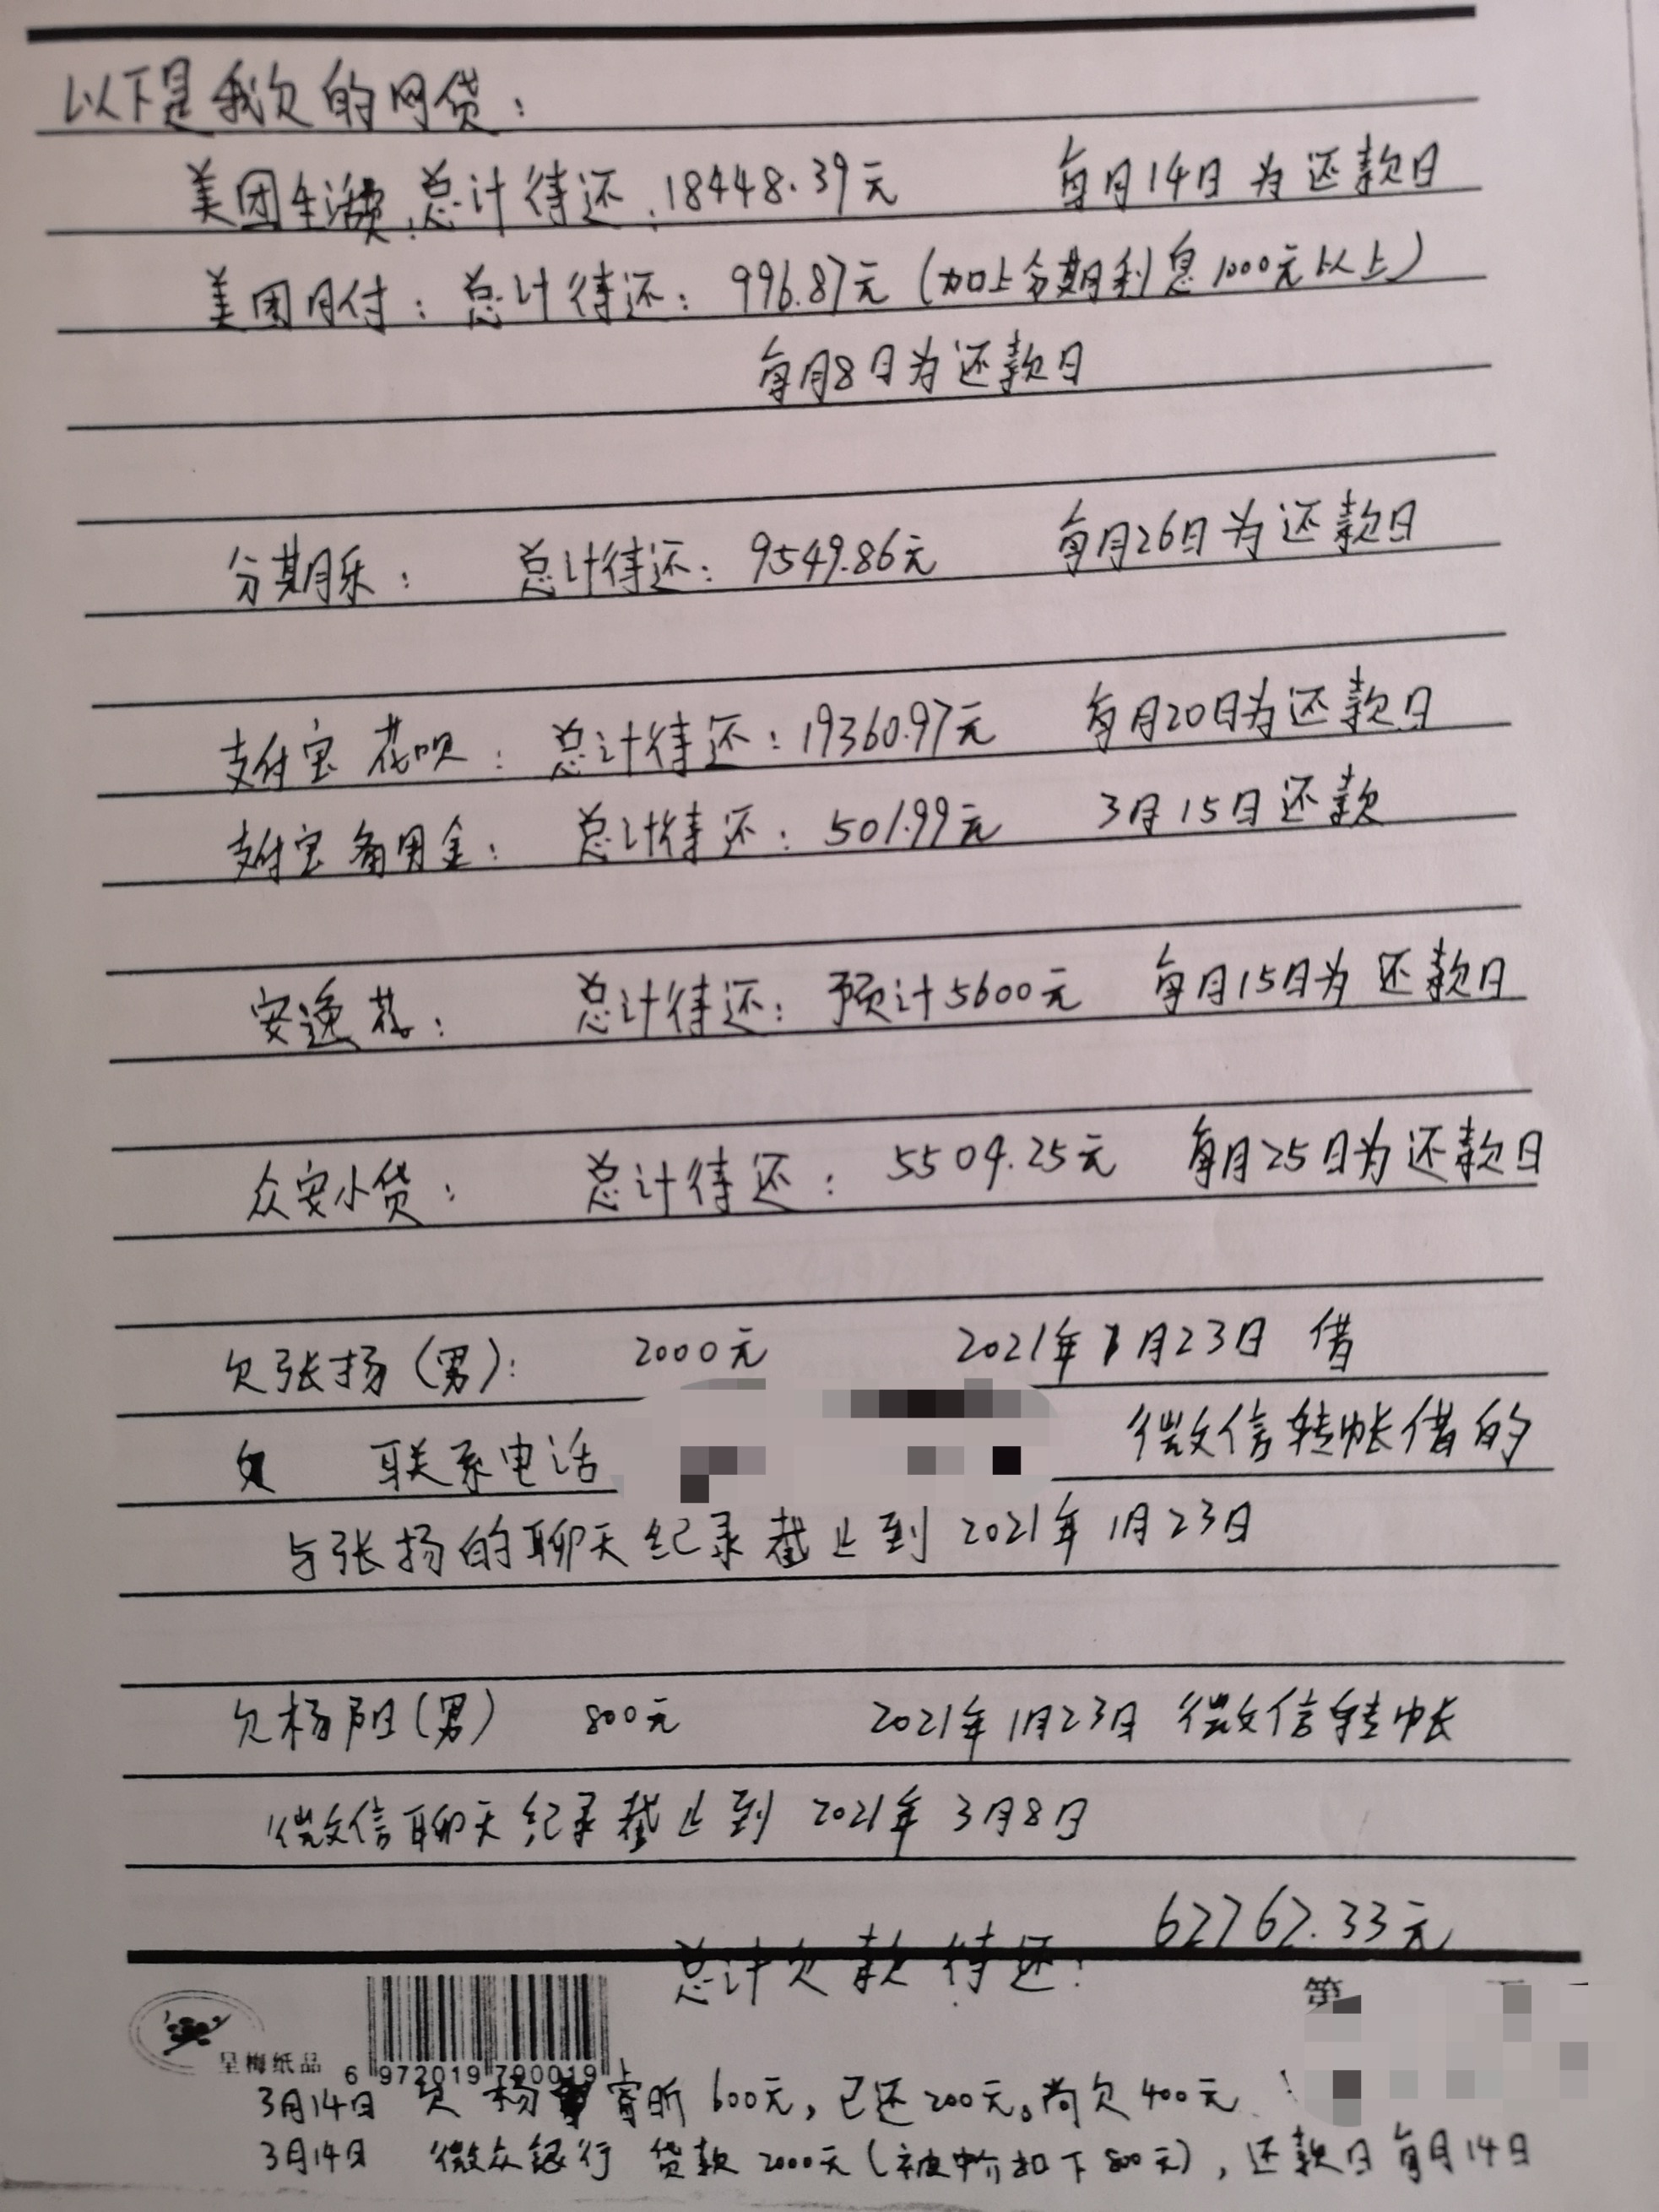 以下是我欠的网贷：
美团生活费：总计待还：18448.39元 每月14日为还款日
美团月付：总计待还：996.87元（加上分期利息1000元以上）
每月8日为还款日
分期乐：总计待还：9549.86元 每月26日为还款日
支付宝花呗：总计待还：19360.97元 每月20日为还款日
支付宝备用金：总计待还：501.99元 3月15日还款
安逸花：总计待还：预计5600元 每月15日为还款日
众安小贷：总计待还：5504.25元 每月25日为还款日
欠张扬（男）：2000元 2021年1月23日 借
联系电话 微信转帐借的
与张扬的聊天纪录截止到2021年1月23日
欠杨阳（男） 800元 2021年1月23日 微信转帐
微信聊天纪录截止到2021年3月8日
总计欠款待还：62762.33元
第
呈梅纸品 6 972019 790019
3月14日 欠 杨 寄昕 600元，已还200元。尚欠400元
3月14日 微众银行 贷款2000元（被中介扣下800元），还款日每月14日